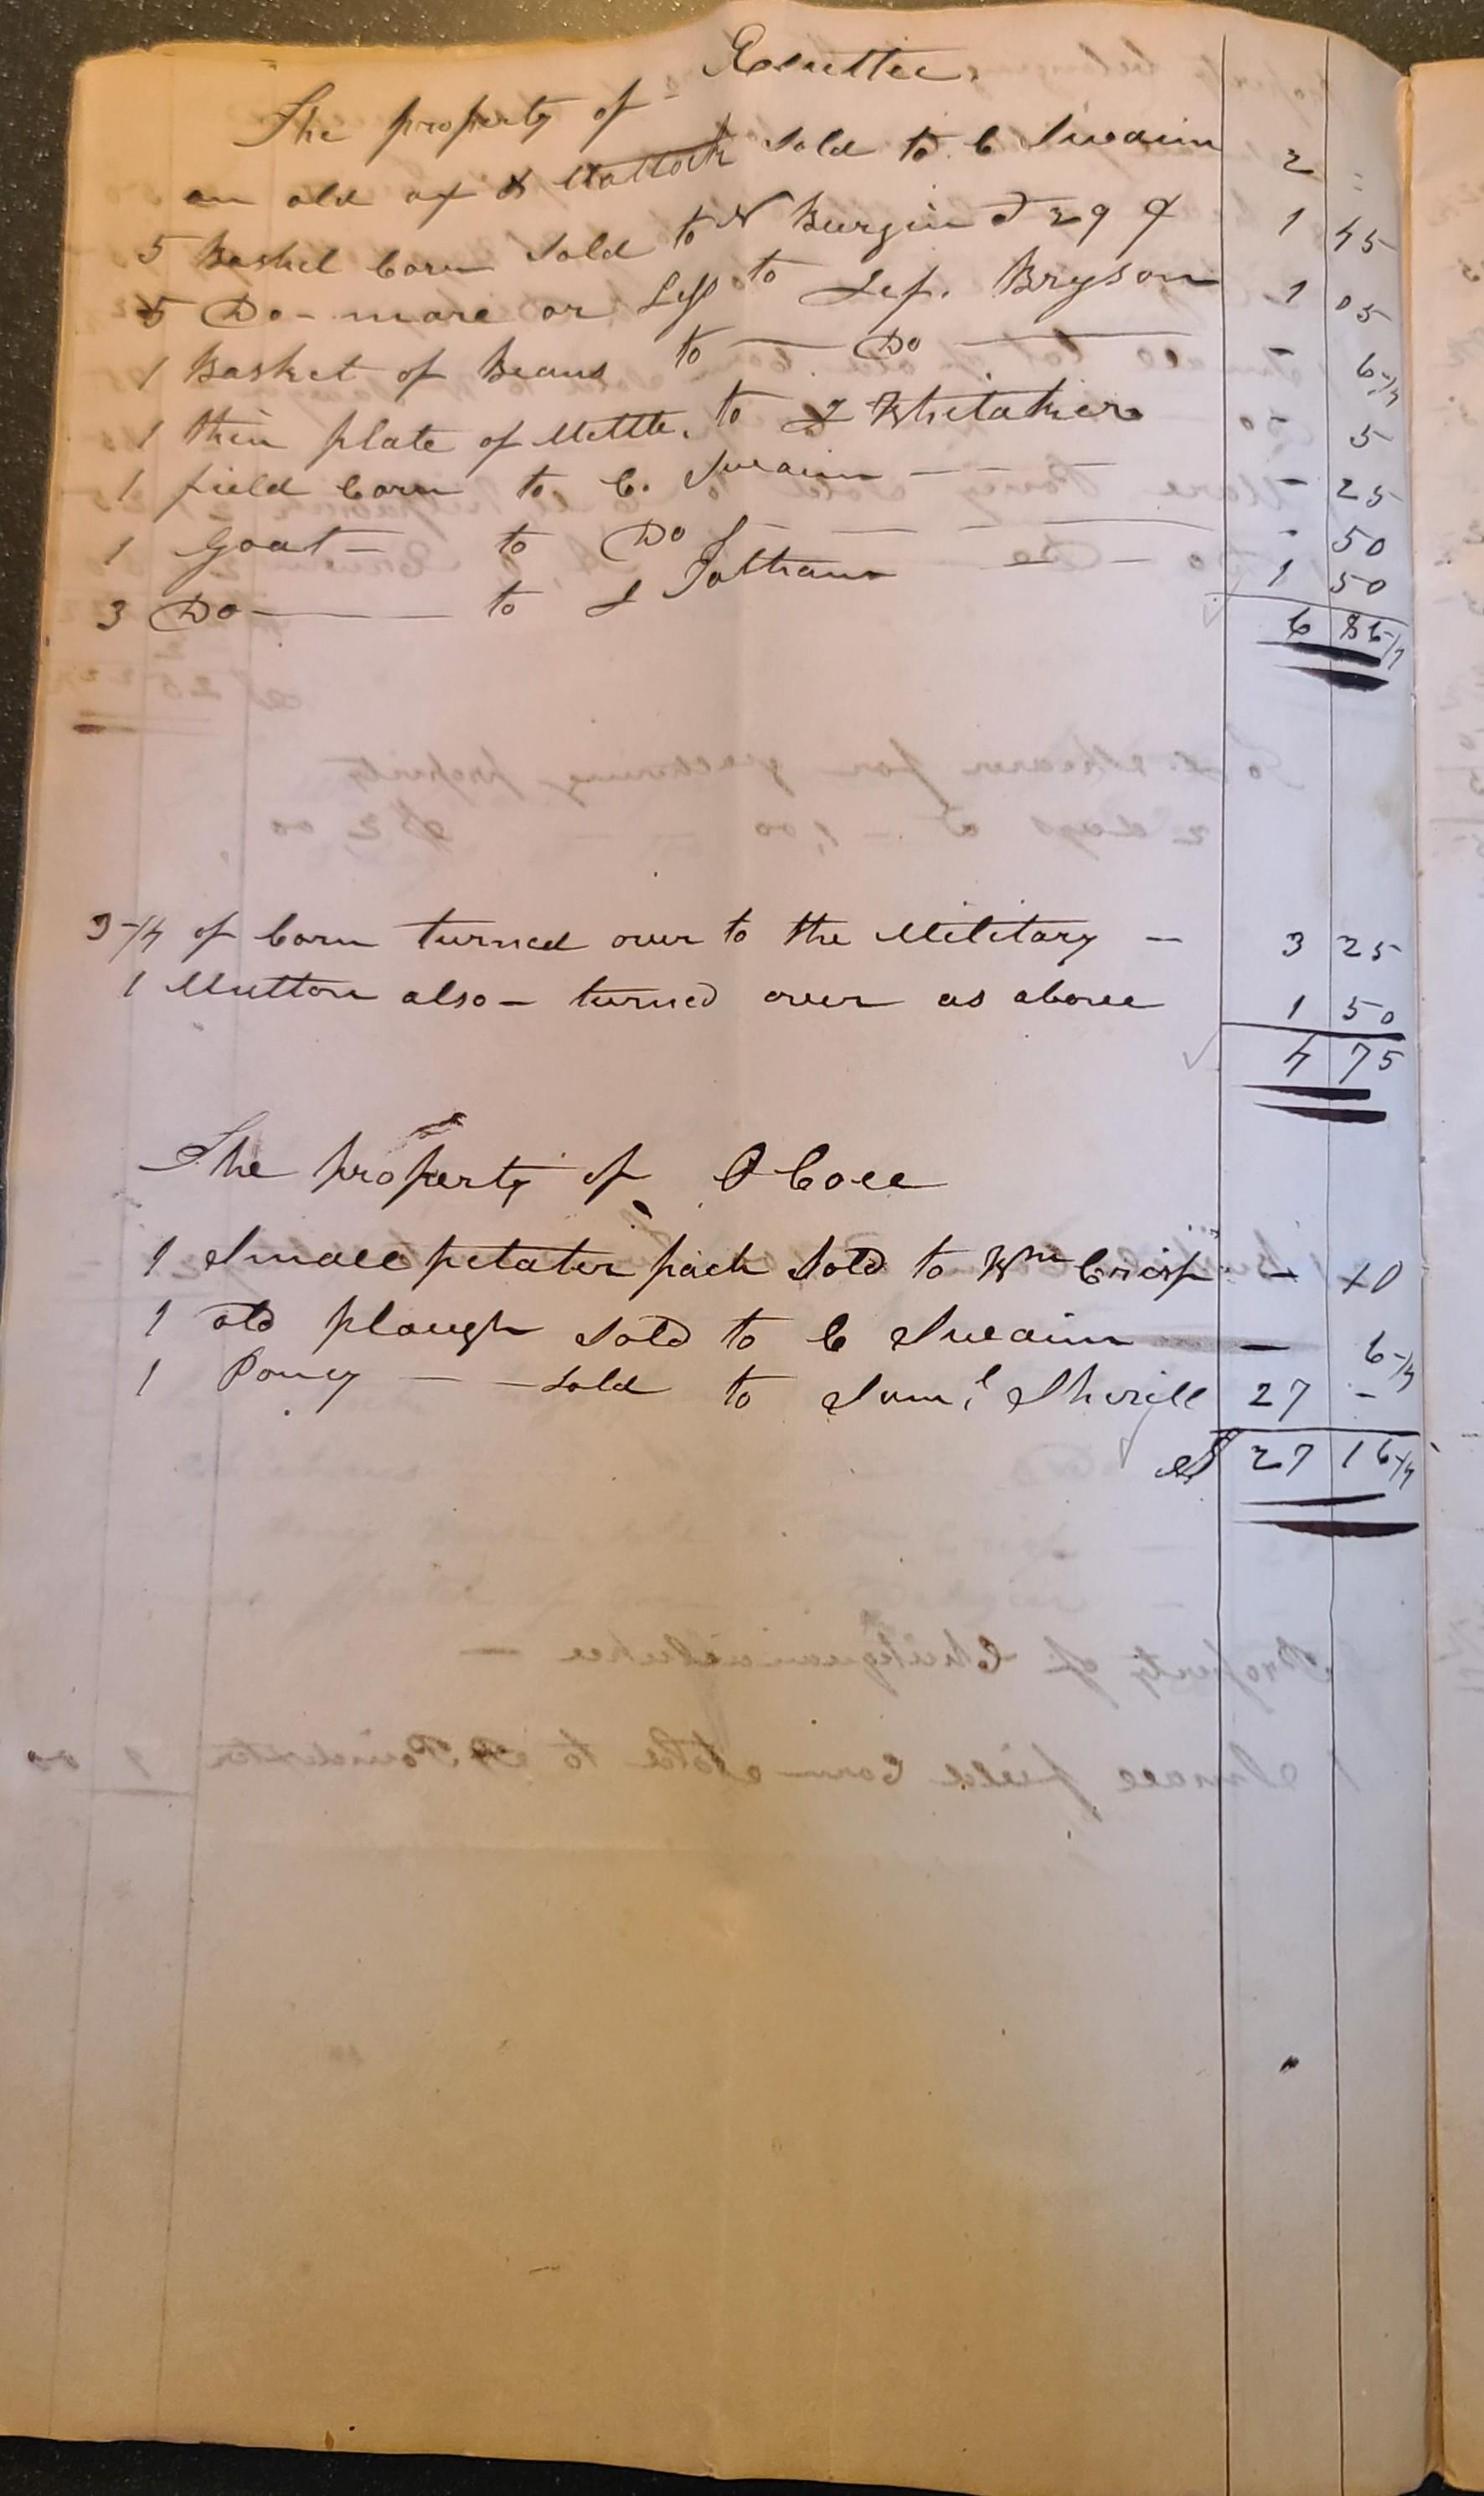 The property of
an old ax & Mattock Sold to C Swaim 2 =
5 Bushel Corn Sold to N Burgin @ 29 ¢ 1 45
5 Do- more or Less to Lef. Bryson 1 05
1 Basket of Beans to — Do — - 6 1/4
1 thin plate of Mettle. to J Whitaker - 5
1 field Corn to C. Swaim - - - 25
1 Goat - to Do - - - - 50
3 Do - to J 1 50
6 86 1/4
3 1/4 of Corn turned over to the Military - 3 25
1 Mutton also - turned over as above 1 50
4 75
The property of
1 Small petater pach Sold to Wm Crisp - 10
1 old plough Sold to C Swaim - 6 1/4
1 Poney - - Sold to Saml Sherill 27 -
$ 27 16 1/4